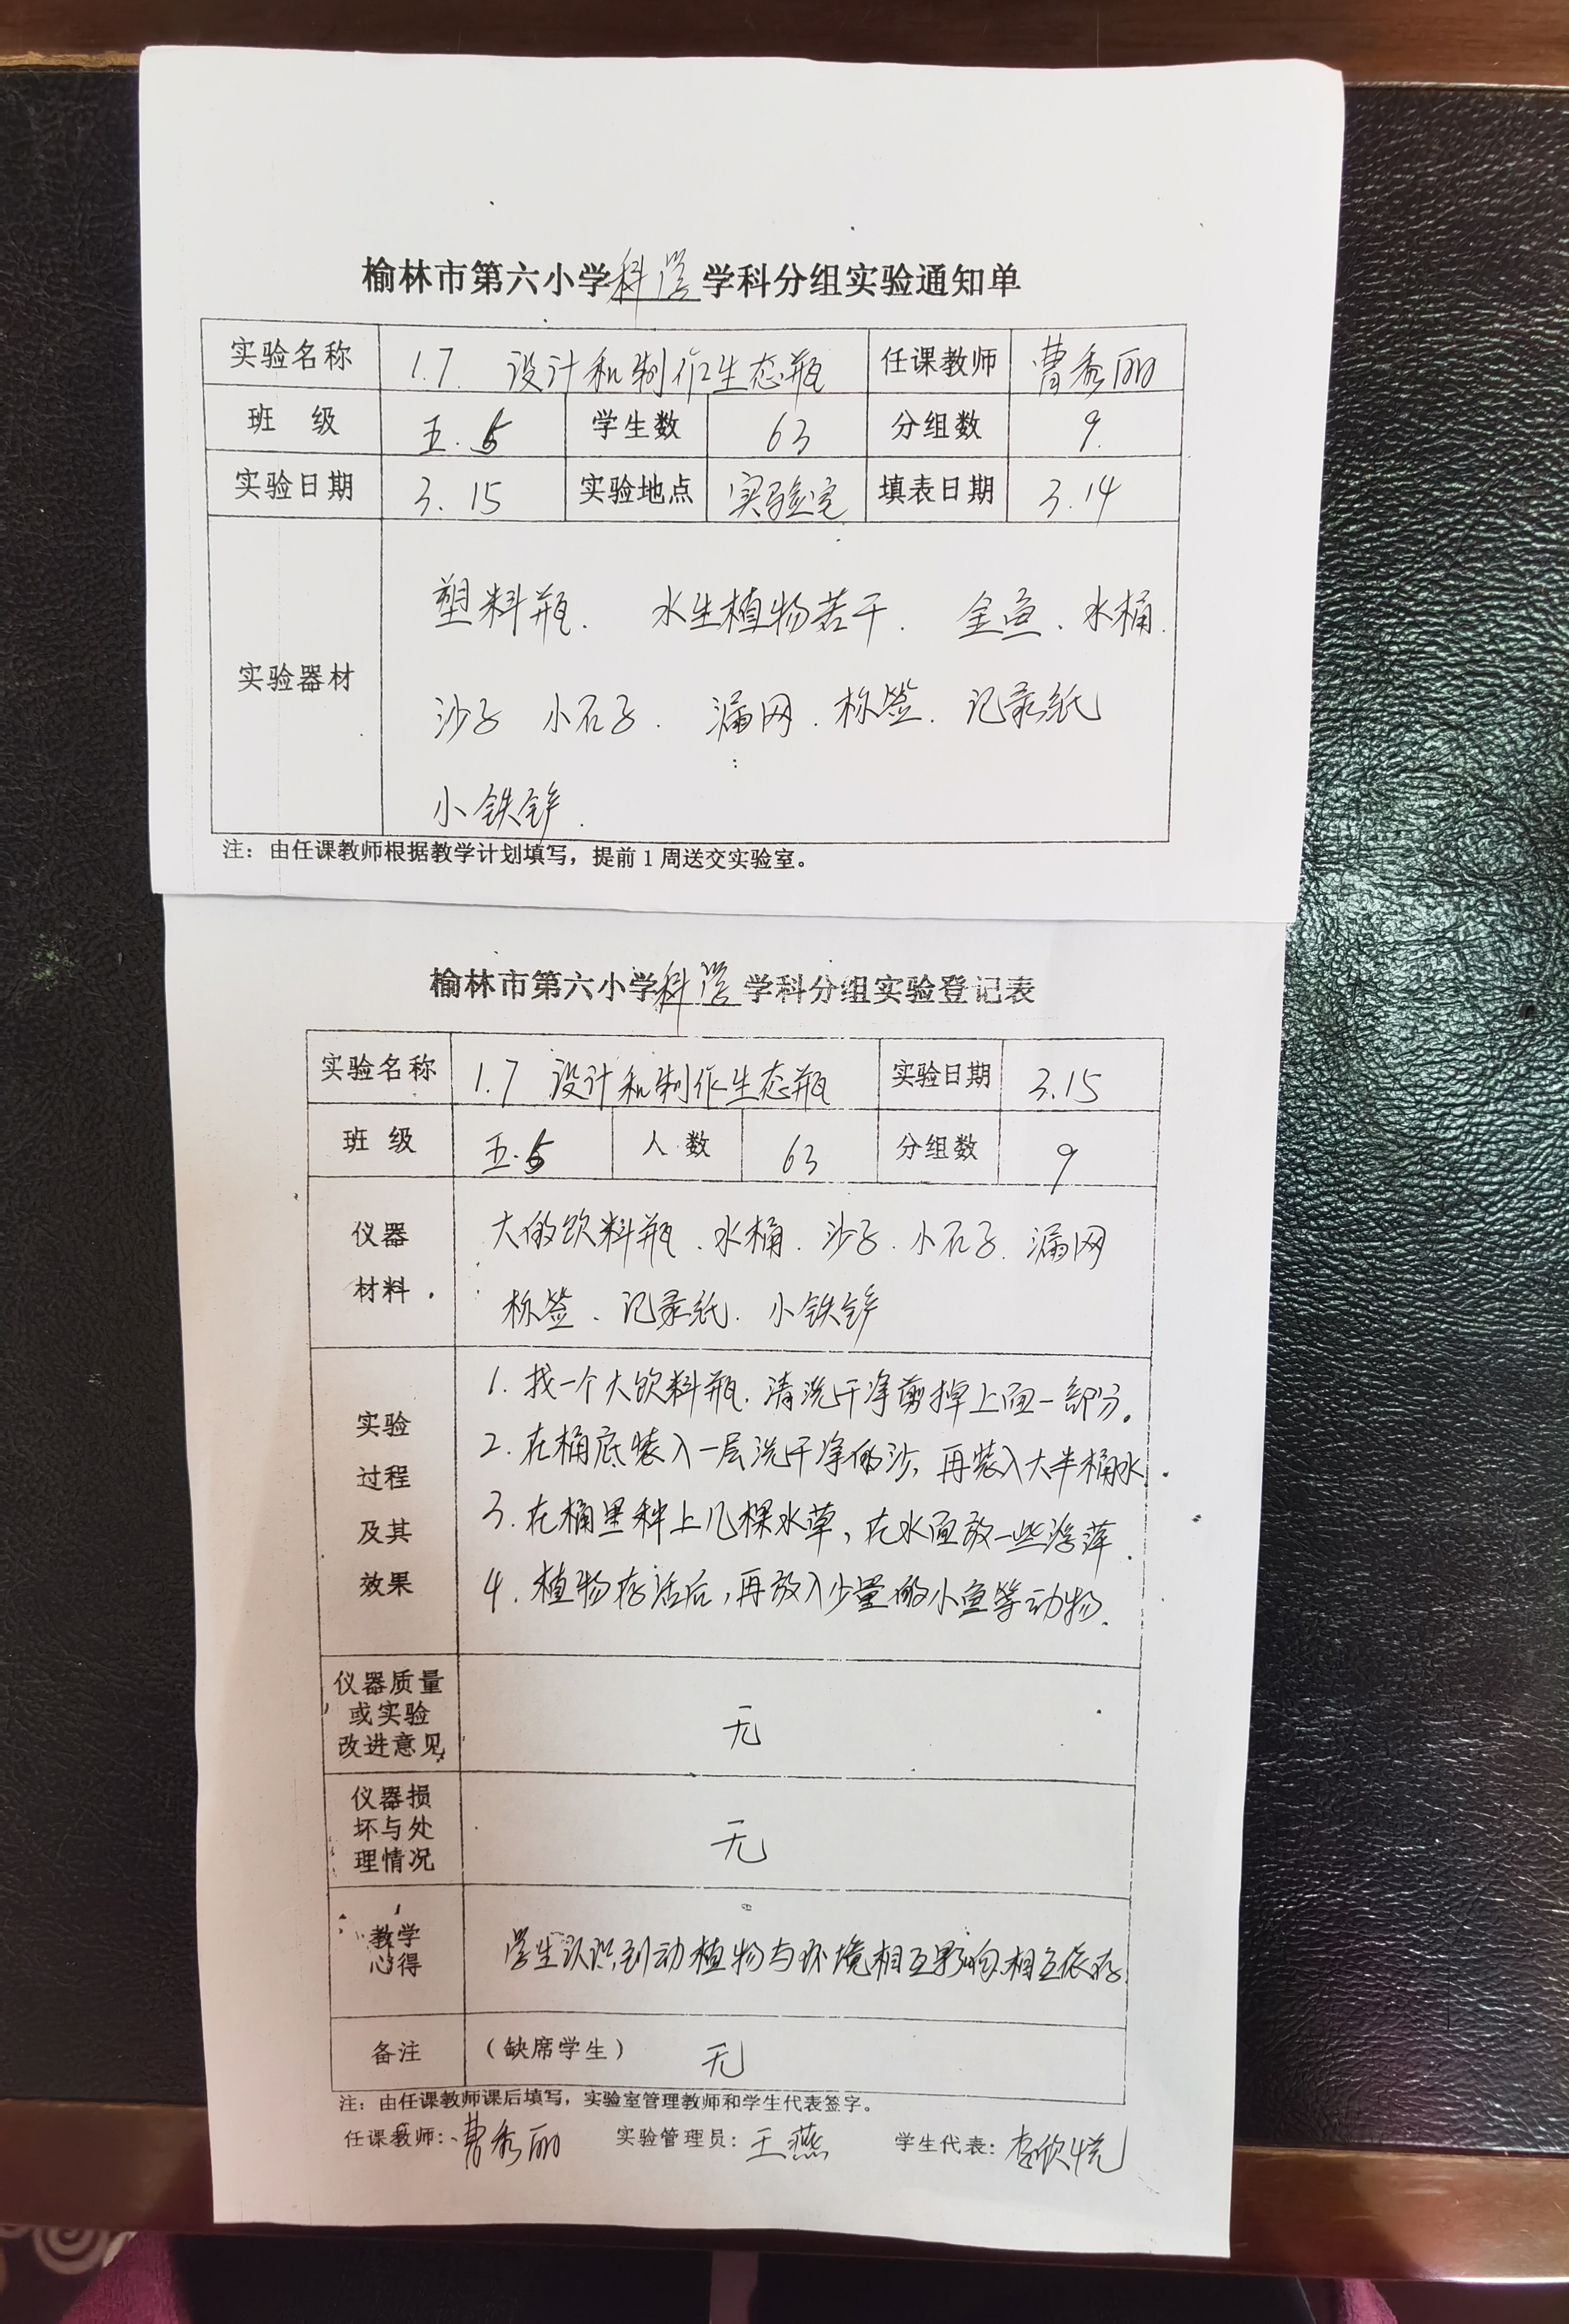 榆林市第六小学科学学科分组实验通知单
实验名称 1.7 设计和制作生态瓶 任课教师 曹秀丽
班 级 五.5 学生数 63 分组数 9.
实验日期 3.15 实验地点 实验室 填表日期 3.14
实验器材
塑料瓶. 水生植物若干. 金鱼、水桶.
沙子 小石子. 漏网.标签.记录纸
小铁锌.
注：由任课教师根据教学计划填写，提前1周送交实验室。
榆林市第六小学科学学科分组实验登记表
实验名称 1.7 设计和制作生态瓶 实验日期 3.15
班 级 五.5 人 数 63 分组数 9
仪器材料
大的饮料瓶、水桶.沙子.小石子.漏网
标签、记录纸.小铁锌
实验过程及其效果
1.找一个大饮料瓶.清洗干净剪掉上面一部分。
2.在桶底装入一层洗干净的沙,再装入大半桶水.
3.在桶里种上几棵水草,在水面放一些浮萍.
4.植物存活后,再放入少量的小鱼等动物.
仪器质量或实验改进意见 无
仪器损坏与处理情况 无
教学心得 学生认识到动植物与环境相互影响.相互依存.
备注 （缺席学生） 无
注：由任课教师课后填写，实验室管理教师和学生代表签字。
任课教师：曹秀丽 实验管理员：王燕 学生代表：李欣悦